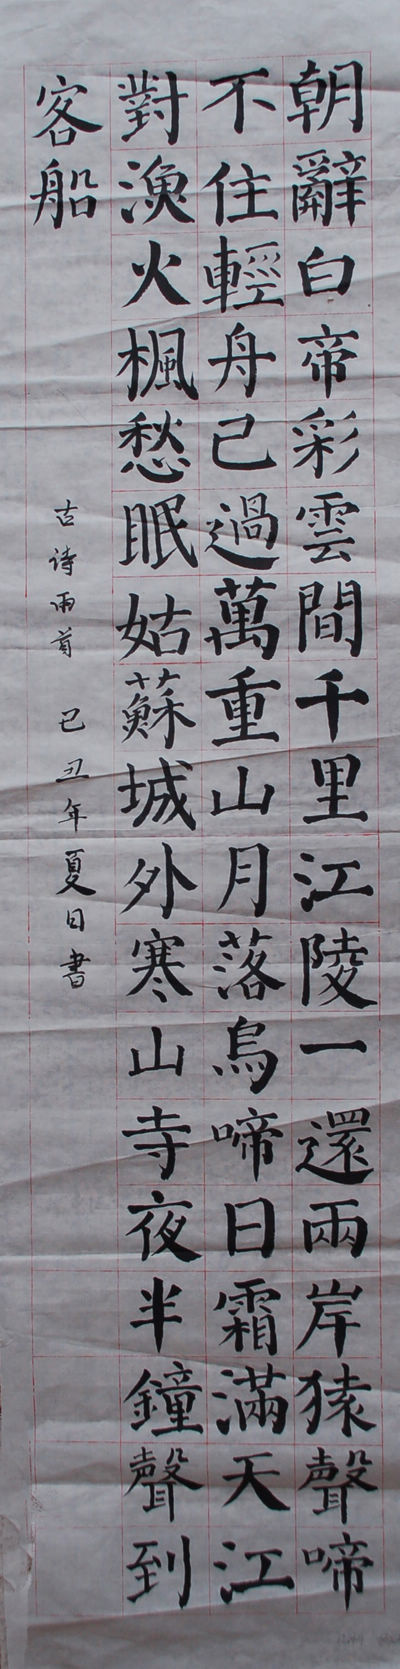 朝辭白帝彩雲間千里江陵一還兩岸猿聲啼
不住輕舟己過萬重山月落烏啼日霜滿天江
對漁火楓愁眠姑蘇城外寒山寺夜半鐘聲到
客船
古诗兩首 己丑年夏日書